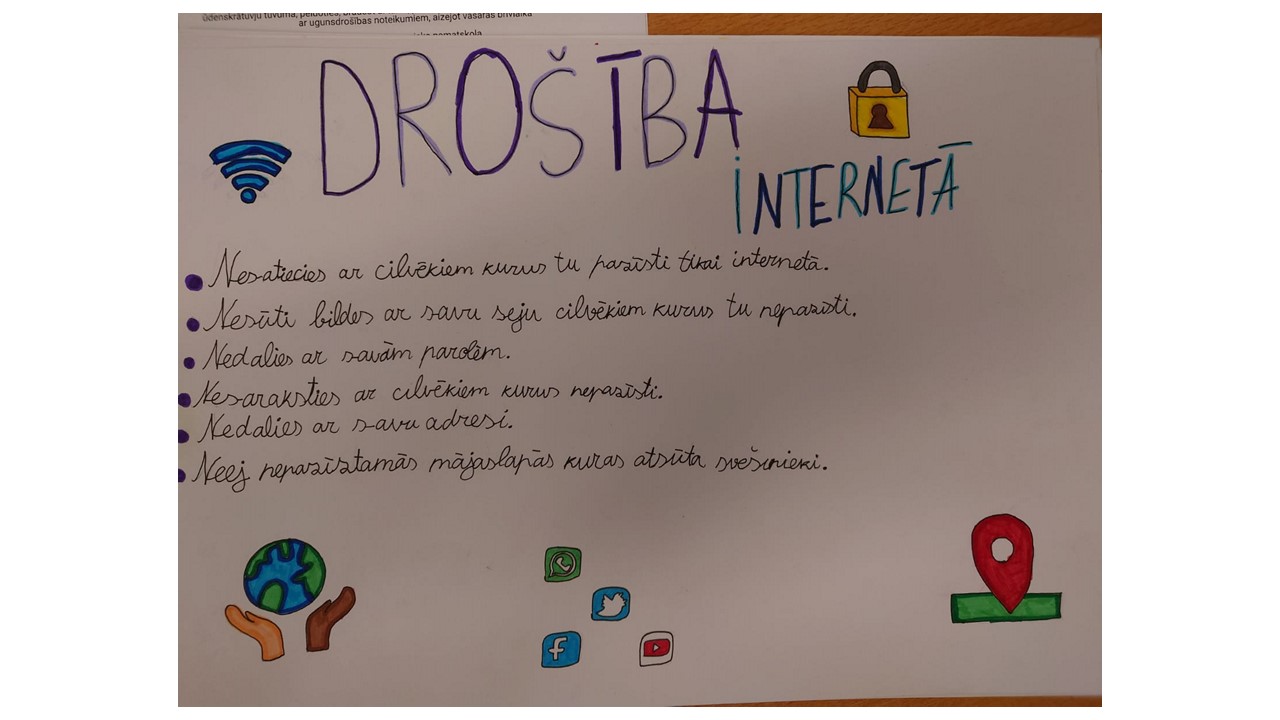 ūdenskrātuvju tuvumā, peldoties, braucot
ar ugunsdrošības noteikumiem, aizejot vasaras brīvlaikā
pamatskola
DROŠĪBA
INTERNETĀ
Nesatiecies ar cilvēkiem kurus tu pazīsti tikai internetā.
Nesūti bildes ar savu seju cilvēkiem kurus tu nepazīsti.
Nedalies ar savām parolēm.
Nesaraksties ar cilvēkiem kurus nepazīsti.
Nedalies ar savu adresi.
Neej nepazīstamās mājaslapās kuras atsūta svešinieki.
f